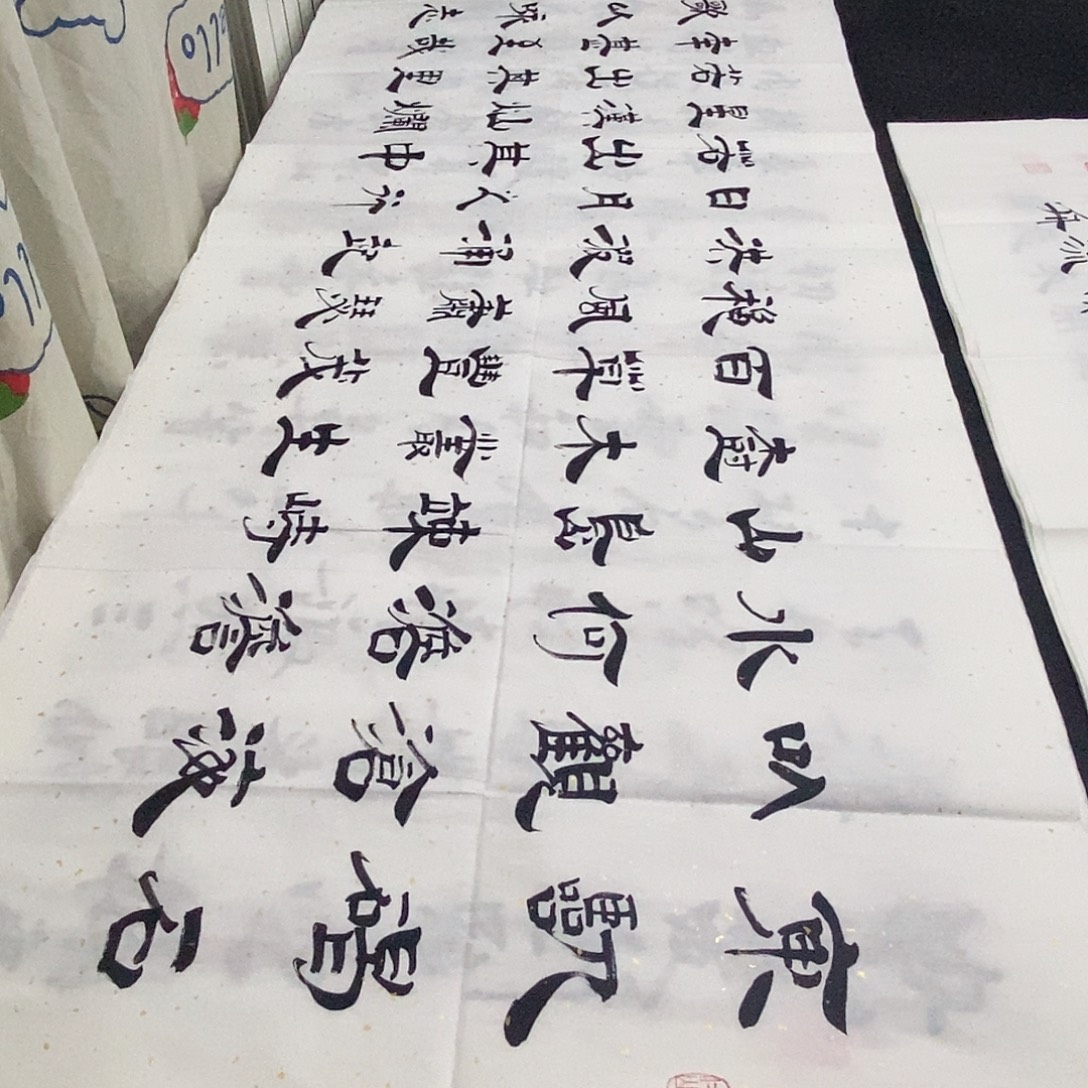 東臨碣石
以觀滄海
水何澹澹
山島竦峙
樹木叢生
百草豐茂
秋風蕭瑟
洪波涌起
日月之行
若出其中
星漢灿爛
若出其里
幸甚至哉
歌以咏志